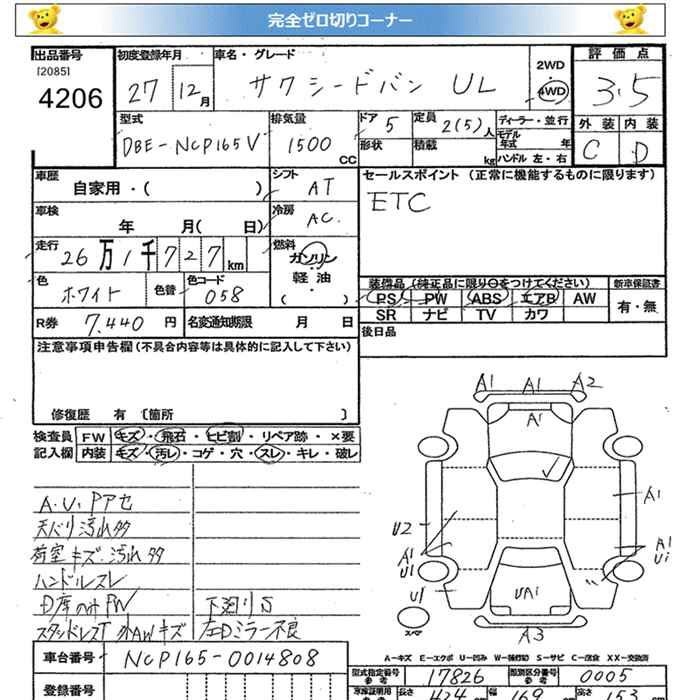 完全ゼロ切りコーナー
出品番号 初度登録年月 車名・グレード 2WD 評価点
[2085]
4206 27 12月 サクシードバン UL 4WD 3.5
型式 排気量 ドア 5 定員 2(5)人 ディーラー・並行 外装 内装
DBE-NCP165V 1500 CC 形状 積載 kg モデル年式 年 C D
ハンドル 左・右
車歴 シフト セールスポイント (正常に機能するものに限ります)
自家用・( ) AT ETC
車検 冷房
年 月( 日) AC.
走行 燃料
26万1千727km ガソリン・軽油・( )
色 色替 色コード 装備品(純正品に限り○をつけてください) 新車保証書
ホワイト 058 PS PW ABS エアB AW 有・無
SR ナビ TV カワ
R券 7,440 円 名変通知期限 月 日 後日品
注意事項申告欄(不具合内容等は具体的に記入して下さい)
修復歴 有 〔箇所 〕
検査員 FW キズ・飛石・ヒビ割・リペア跡・×要
記入欄 内装 キズ・汚レ・コゲ・穴・スレ・キレ・破レ
A1 A1 A2
A1
A1
U2
A1 U1
A1 U1
U1
UA1
A3
スペア
A.U.Pアセ
天バリ汚れ多
荷室キズ・汚れ多
ハンドルスレ
D席のみPW 下廻りS
スタッドレスT 外AWキズ 左Dミラー不良
A-キズ E-エクボ U-凹み W-補修跡 S-サビ C-腐食 XX-交換済
車台番号 NCP165-0014808
型式指定番号 参考 17826 類別区分番号 参考 0005
登録番号
車庫証明用 参考 長さ 424 cm 幅 169 cm 高さ 153 cm